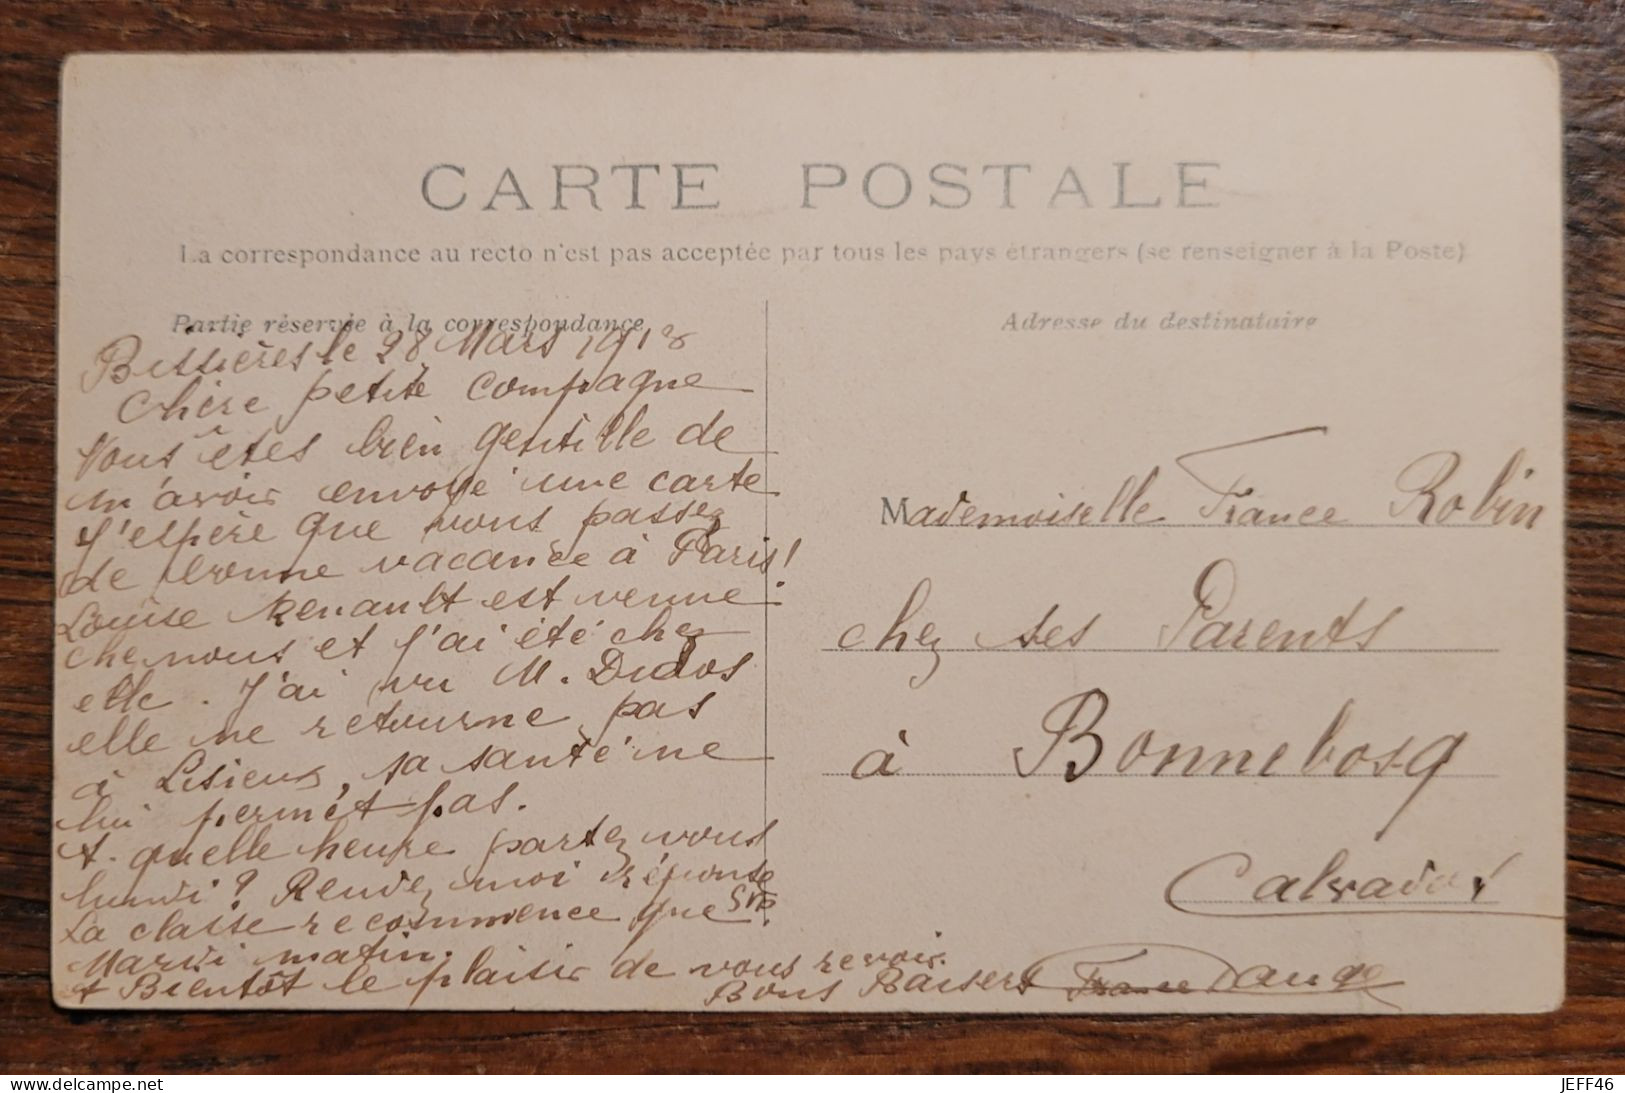 CARTE POSTALE
La correspondance au recto n'est pas acceptée par tous les pays étrangers (se renseigner à la Poste)
Partie réservée à la correspondance
Adresse du destinataire
Bissières le 28 Mars 1918
Chère petite Compagne
Vous êtes bien gentille de
m'avoir envoyé une carte
J'espère que vous passez
de bonne vacance à Paris!
Louise Renault est venue
chez nous et j'ai été chez
elle. J'ai vu M. Dudos
elle ne retourne pas
à Lisieux, sa santé ne
lui permèt pas.
A quelle heure partez vous
lundi? Rendez moi réponse
SVP.
La classe recommence que
Mardi matin.
A Bientôt le plaisir de vous revoir.
Bons Baisers France
Mademoiselle France Robin
chez ses Parents
à Bonnebosq
Calvados
delcampe.net
JEFF46